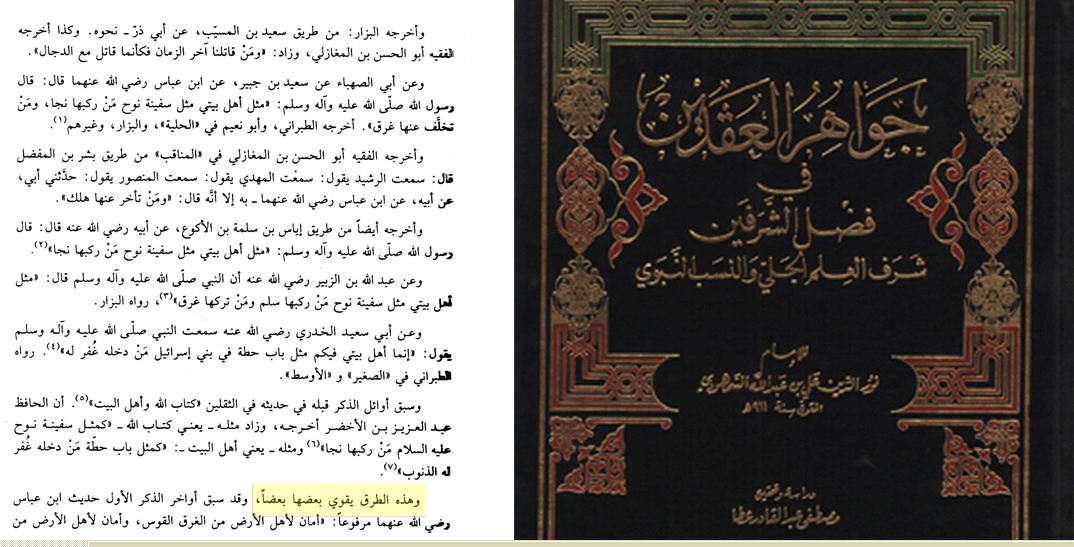 وأخرجه البزار: من طريق سعيد بن المسيّب، عن أبي ذرّ ـ نحوه. وكذا أخرجه
الفقيه أبو الحسن بن المغازلي، وزاد: «ومَنْ قاتلنا آخر الزمان فكأنما قاتل مع الدجال».
وعن أبي الصهباء عن سعيد بن جبير، عن ابن عباس رضي الله عنهما قال: قال
رسول الله صلّى الله عليه وآله وسلم: «مثل أهل بيتي مثل سفينة نوح مَنْ ركبها نجا، ومَنْ
تخلَّف عنها غرق». أخرجه الطبراني، وأبو نعيم في «الحلية»، والبزار، وغيرهم(١).
وأخرجه الفقيه أبو الحسن بن المغازلي في «المناقب» من طريق بشر بن المفضل
قال: سمعت الرشيد يقول: سمعْت المهدي يقول: سمعت المنصور يقول: حدَّثني أبي،
عن أبيه، عن ابن عباس رضي الله عنهما ـ به إلا أنَّه قال: «ومَنْ تأخر عنها هلك».
وأخرجه أيضاً من طريق إياس بن سلمة بن الأكوع، عن أبيه رضي الله عنه قال: قال
رسول الله صلّى الله عليه وآله وسلم: «مثل أهل بيتي مثل سفينة نوح مَنْ ركبها نجا»(٢).
وعن عبد الله بن الزبير رضي الله عنه أن النبي صلّى الله عليه وآله وسلم قال: «مثل
أهل بيتي مثل سفينة نوح مَنْ ركبها سلم ومَنْ تركها غرق»(٣)، رواه البزار.
وعن أبي سعيد الخدري رضي الله عنه سمعت النبي صلّى الله عليه وآله وسلم
يقول: «إنما أهل بيتي فيكم مثل باب حطة في بني إسرائيل مَنْ دخله غُفر له»(٤). رواه
الطبراني في «الصغير» و «الأوسط».
وسبق أوائل الذكر قبله في حديثه في الثقلين «كتاب الله وأهل البيت»(٥). أن الحافظ
عبد العزيز بن الأخضر أخرجه، وزاد مثله ـ يعني كتاب الله ـ «كمثل سفينة نوح
عليه السلام مَنْ ركبها نجا»(٦) ومثله ـ يعني أهل البيت ـ: «كمثل باب حطّة مَنْ دخله غُفر
له الذنوب»(٧).
وهذه الطرق يقوي بعضها بعضاً، وقد سبق أواخر الذكر الأول حديث ابن عباس
رضي الله عنهما مرفوعاً: «أمان لأهل الأرض من الغرق القوس، وأمان لأهل الأرض من
جواهر العقدين
في
فضل الشرفين
شرف العلم الجلي والنسب النبوي
للإمام
نور الدين علي بن عبد الله السمهودي
المتوفى سنة ٩١١هـ
دراسة وتحقيق
مصطفى عبد القادر عطا